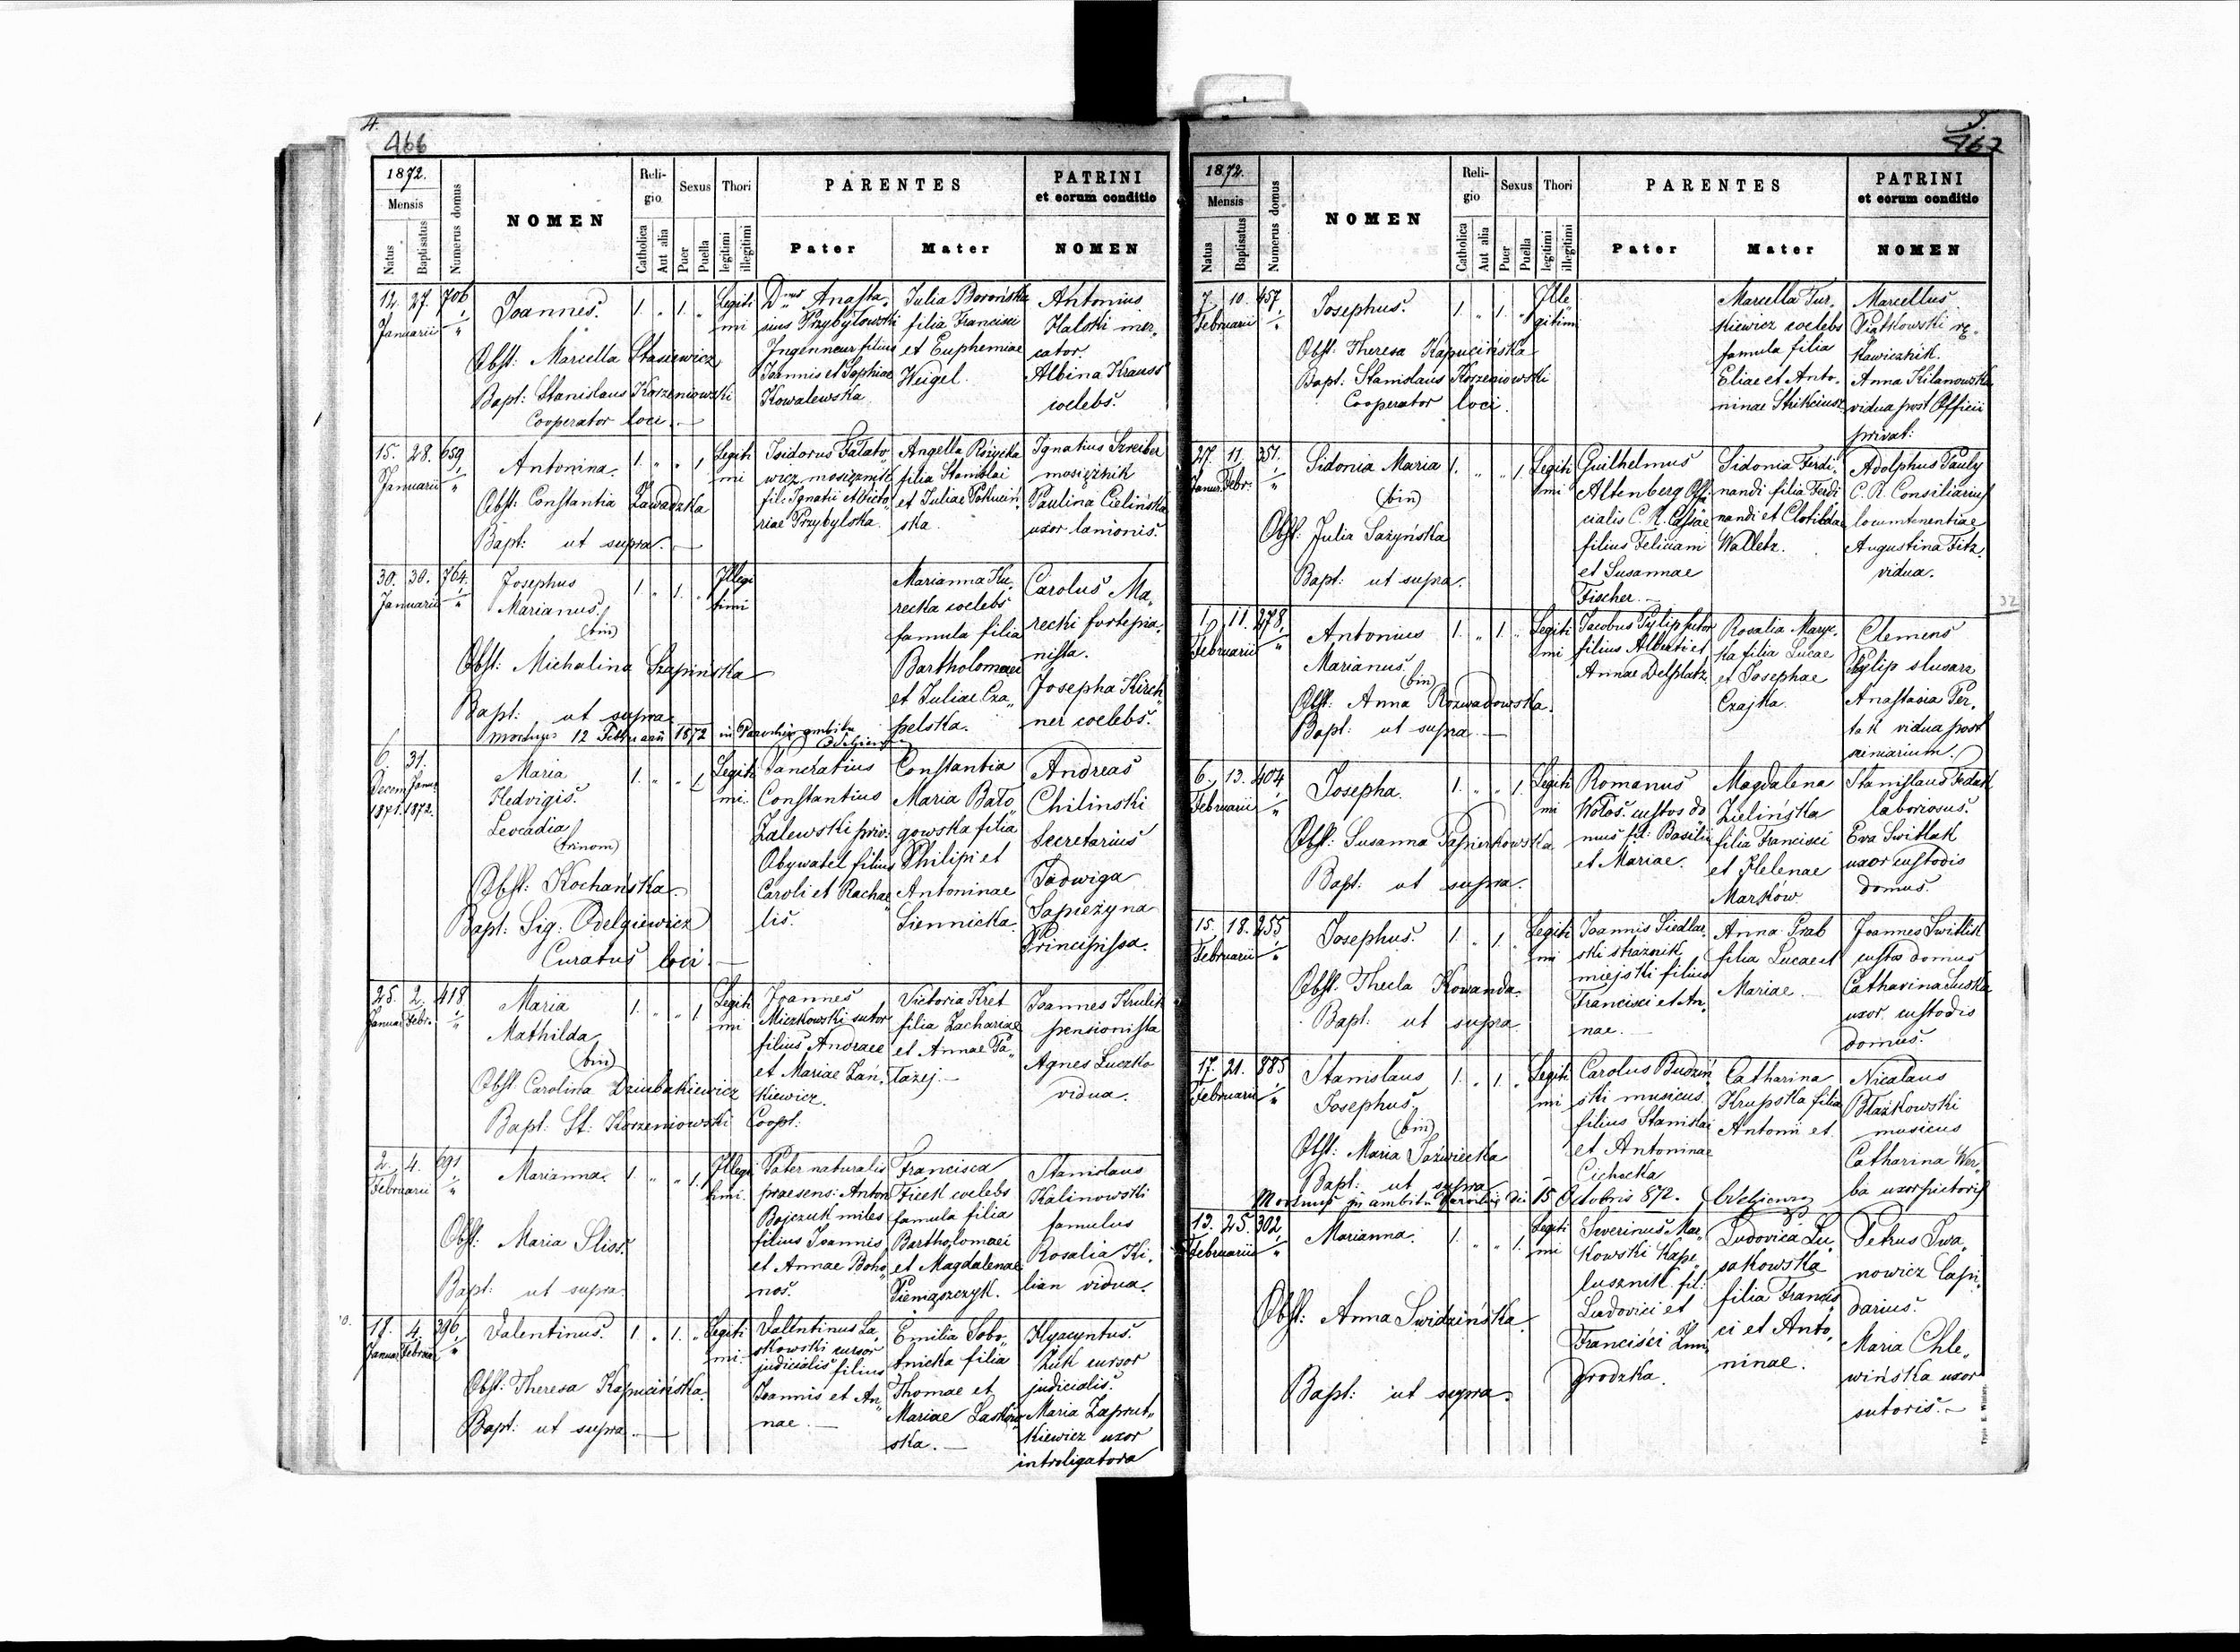 4.
466
1872.
Mensis
Natus
Baptisatus
Numerus domus
NOMEN
Reli-
gio
Catholica
Aut alia
Sexus
Puer
Puella
Thori
legitimi
illegitimi
PARENTES
Pater
Mater
PATRINI
et eorum conditio
NOMEN
12. 27. 706
Januarii
Joannes. 1. " 1. "
Legiti
mi
Obst: Marcella Stasiewicz
Bapt: Stanislaus Korzeniowski
Cooperator loci.
Dnus Anasta-
sius Przybyłowski
Ingenneur filius
Joannis et Sophiae
Kowalewska
Julia Borońska
filia Francisci
et Euphemiae
Weigel.
Antonius
Halski mer-
cator.
Albina Krauss
coelebs.
15. 28. 659
Januarii
Antonina. 1. " " 1
Legiti
mi
Obst: Constantia Zawadzka
Bapt: ut supra.
Isidorus Fałato-
wicz mosięznik
fil: Ignatii et Victo-
riae Przybylska.
Angella Rożycka
filia Stanislai
et Juliae
ska.
Ignatius Szreiber
mosiężnik
Paulina Cielińska
uxor lanionis.
30. 30. 764.
Januarii
Josephus
Marianus.
(bin)
1. " 1. "
Illegi
timi
Obst: Michalina Szapińska
Bapt: ut supra
Mortuus 12 Februarii 1872 in Parochiae ambitu
Marianna Ku-
recka coelebs
famula filia
Bartholomaei
et Juliae Cza-
pelska.
Carolus Ma-
recki fortepia-
nista.
Josepha Kirch-
ner coelebs.
6. 31.
Decem. Janu.
1871. 1872.
Maria
Hedvigis.
Leocadia
(trinom)
1. " " 1
Legiti
mi.
Obst: Kochańska
Bapt: Sig: Odelgiewicz
Curatus loci.
Pancratius
Constantius
Zalewski priv:
Obywatel filius
Caroli et Rachae-
lis.
Constantia
Maria Bato-
gowska filia
Philipi et
Antoninae
Siennicka.
Andreas
Chilinski
Secretarius
Jadwiga
Sapieżyna
Principissa.
25. 2. 418
Januar Febr.
Maria
Mathilda
(bin)
1. " " 1
Legiti
mi
Obst. Carolina Dziubakiewicz
Bapt: St: Korzeniowski Coopt:
Joannes
Miczkowski sutor
filius Andraee
et Mariae Zań-
kiewicz.
Victoria Kret
filia Zachariae
et Annae Pa-
łażej.
Joannes Krulik
pensionista
Agnes Luczko
vidua.
2. 4. 691
Februarii
Marianna. 1. " " 1.
Illegi
timi.
Obst: Maria Sliss.
Bapt: ut supra
Pater naturalis
praesens: Anton
Bojczuk miles
filius Joannis
et Annae Boho-
nos.
Francisca
Ficek coelebs
famula filia
Bartholomaei
et Magdalenae
Piemąszczyk.
Stanislaus
Kalinowski
famulus
Rosalia Ki-
lian vidua.
18. 4. 396
Januar Februar
Valentinus. 1. " 1. "
Legiti
mi.
Obst: Theresa Kapucińska.
Bapt: ut supra.
Valentinus La-
skowski cursor
judicialis filius
Joannis et An-
nae.
Emilia Sobo-
tnicka filia
Thomae et
Mariae Laskow-
ska.
Hyacyntus
Żuk cursor
judicialis.
Maria Zaprut-
kiewicz uxor
introligatora
5
467
1872.
Mensis
Natus
Baptisatus
Numerus domus
NOMEN
Reli-
gio
Catholica
Aut alia
Sexus
Puer
Puella
Thori
legitimi
illegitimi
PARENTES
Pater
Mater
PATRINI
et eorum conditio
NOMEN
7. 10. 457
Februarii
Josephus. 1. " 1. "
Ille
gitimi
Obst: Theresa Kapucińska
Bapt: Stanislaus Korzeniowski
Cooperator loci.
Marcella Tur-
kiewicz coelebs
famula filia
Eliae et Anto-
ninae Strikciusz
Marcellus
Piątkowski rę-
kawicznik.
Anna Kilanowska
vidua post Officii
privat:
27. 11. 351.
Januar. Febr.
Sidonia Maria
(bin)
1. " " 1
Legiti
mi
Obst: Julia Sazyńska
Bapt: ut supra.
Guilhelmus
Altenberg Offi-
cialis C. R. Cassae
filius Feliciani
et Susannae
Fischer.
Sidonia Ferdi-
nandi filia Ferdi-
nandi et Clotildae
Walletz.
Adolphus Pauly
C. R. Consiliarius
locumtenentiae
Augustina Fitz
vidua.
32
1. 11. 278.
Februarii
Antonius
Marianus.
(bin)
1. " 1. "
Legiti
mi
Obst: Anna Rozwadowska.
Bapt: ut supra
Jacobus Pylip sutor
filius Alberti et
Annae Delplatz.
Rosalia Mary-
ka filia Lucae
et Josephae
Czajka.
Clemens
Pylip slusarz
Anastasia Per-
tak vidua post
6. 13. 404
Februarii
Josepha. 1. " " 1.
Legiti
mi
Obst: Susanna Papierkowska
Bapt: ut supra.
Romanus
Wołos. custos do
mus fil: Basilii
et Mariae.
Magdalena
Zielińska
filia Francisci
et Helenae
Marsków
Stanislaus Fedak
laboriosus.
Eva Switlak
uxor custodis
domus.
15. 18. 255
Februarii
Josephus. 1. " 1. "
Legiti
mi
Obst. Thecla Kowanda.
Bapt: ut supra
Joannis Siedlar-
ski strażnik
miejski filius
Francisci et An-
nae.
Anna Prab
filia Lucae et
Mariae
Joannes Switlik
custos domus
Catharina Luska
uxor custodis
domus.
17. 21. 885
Februarii
Stanislaus
Josephus
(bin)
1. " 1. "
Legiti
mi
Obst: Maria Jaźwiecka
Bapt: ut supra
Mortuus in ambitu Parochiae die 15 Octobris 872.
Carolus Budziń-
ski musicus
filius Stanislai
et Antoninae
Cichocka
Catharina
Krupska filia
Antonii et
Nicolaus
Błażkowski
musicus
Catharina Wer-
ba uxor pictoris
13. 25. 302
Februarii
Marianna. 1. " " 1.
Legiti
mi
Obst: Anna Swidzińska
Bapt: ut supra.
Severinus Mar-
kowski kape-
lusznik fil:
Ludovici et
Francisci Zmi-
grodzka.
Ludovica Lu-
sakowska
filia Francis-
ci et Anto-
ninae.
Petrus Iwa-
nowicz lapi-
darius.
Maria Chle-
wińska uxor
sutoris.
Typis E. Winiarz.